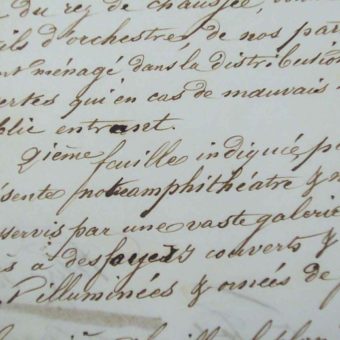 du rez de chaussée,
ils d'orchestre, de nos par
nt ménagé dans la distribution
ertes qui en cas de mauvais
blic entrant.
2ième feuille indiquée, p
ésente notre amphithéatre &
sservis par une vaste galerie
s à des foyers couverts &
illuminées & ornées de